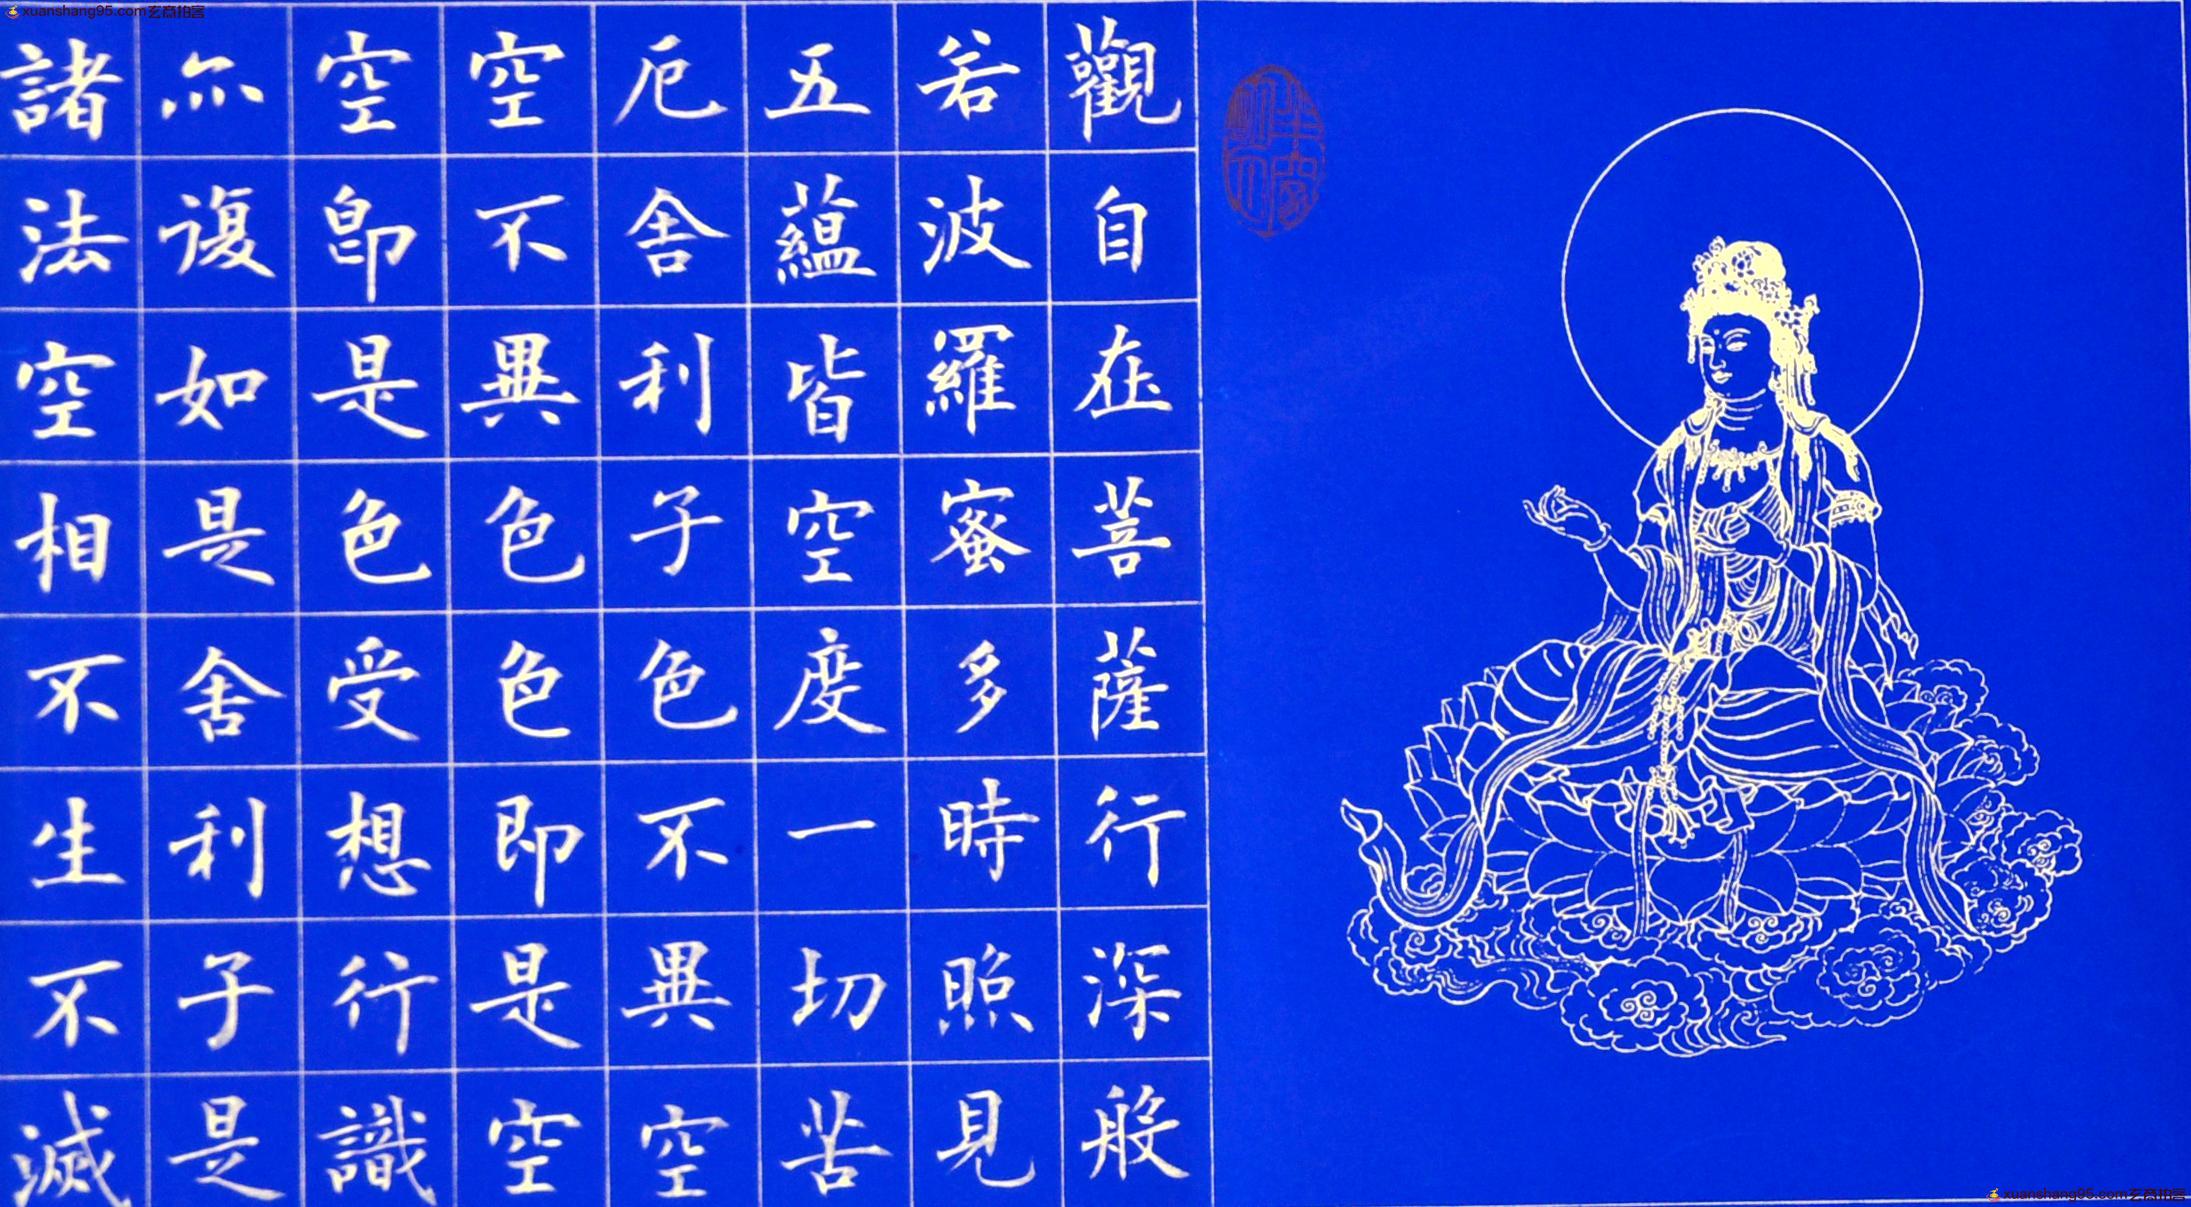 觀自在菩薩行深般
若波羅蜜多時照見
五蘊皆空度一切苦
厄舍利子色不異空
空不異色色即是空
空即是色受想行識
亦復如是舍利子是
諸法空相不生不滅
xuanshang95.com玄商拍客
xuanshang95.com玄商拍客